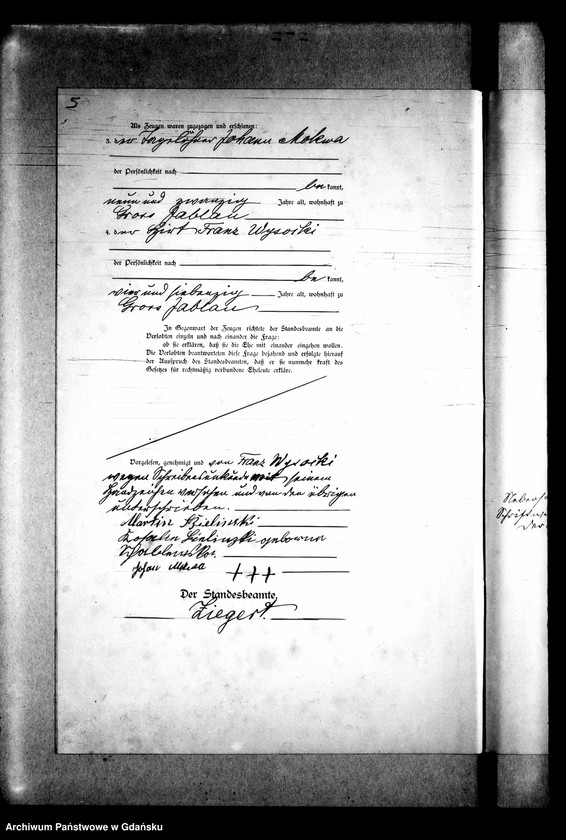 5
Als Zeugen waren zugezogen und erschienen:
3. der Tagelöhner Johann Mokwa
der Persönlichkeit nach
be kannt,
neun und zwanzig Jahre alt, wohnhaft zu
Gross Jablau
4. der Hirt Franz Wysocki
der Persönlichkeit nach
be kannt,
vier und siebenzig Jahre alt, wohnhaft zu
Gross Jablau
In Gegenwart der Zeugen richtete der Standesbeamte an die
Verlobten einzeln und nach einander die Frage:
ob sie erklären, daß sie die Ehe mit einander eingehen wollen.
Die Verlobten beantworteten diese Frage bejahend und erfolgte hierauf
der Ausspruch des Standesbeamten, daß er sie nunmehr kraft des
Gesetzes für rechtmäßig verbundene Eheleute erkläre.
Vorgelesen, genehmigt und von Franz Wysocki
wegen Schreibensunkunde mit seinem
Handzeichen versehen und von den übrigen
unterschrieben.
Martin Bielinski
Bielinzki geborene
Johan
+++
Der Standesbeamte.
Ziegert.
der
Archiwum Państwowe w Gdańsku